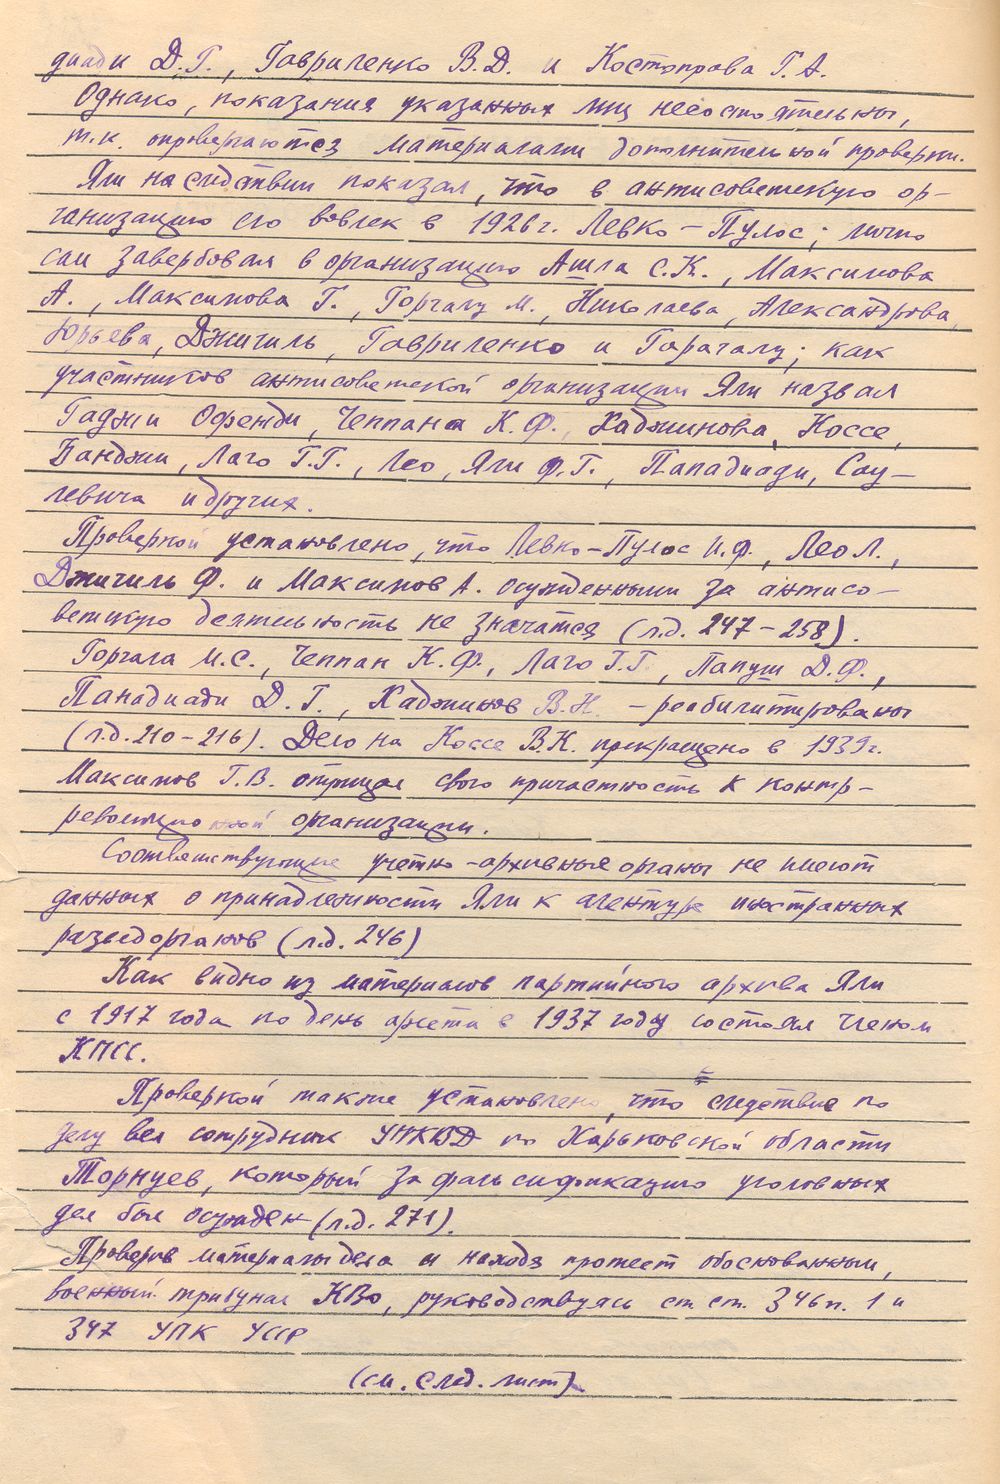 диади Д.Г., Гавриленко В.Д. и Костоправа Г.А.
Однако, показания указанных лиц несостоятельны,
т.к. опровергаются материалами дополнительной проверки.
Яли на следствии показал, что в антисоветскую ор-
ганизацию его вовлек в 1926 г. Левко-Пулос; лично
сам завербовал в организацию Ашла С.К., Максимова
А., Максимова Г., Горгалу М., Николаева, Александрова,
Юрьева, Джичиль, Гавриленко и Гарагалу; как
участников антисоветской организации Яли назвал
Гаджи Офенди, Чеппана К.Ф., Хаджинова, Коссе,
Банджи, Лаго Г.Г., Лео, Яли Ф.Г., Пападиади, Сау-
левича и других.
Проверкой установлено, что Левко-Пулос И.Ф., Лео Л.,
Джичиль Ф. и Максимов А. осужденными за антисо-
ветскую деятельность не значатся (л.д. 247-258).
Горгала М.С., Чеппан К.Ф., Лаго Г.Г., Папуш Д.Ф.,
Панадиади Д.Г., Хаджинов В.Н. - реабилитированы
(л.д. 210-216). Дело на Коссе В.К. прекращено в 1939 г.
Максимов Г.В. отрицал свою причастность к контр-
революционной организации.
Соответствующие учетно-архивные органы не имеют
данных о принадлежности Яли к агентуре иностранных
разведорганов (л.д. 246)
Как видно из материалов партийного архива Яли
с 1917 года по день ареста в 1937 году состоял членом
КПСС.
Проверкой также установлено, что следствие по
делу вел сотрудник УНКВД по Харьковской области
Торнуев, который за фальсификацию уголовных
дел был осужден (л.д. 271).
Проверив материалы дела и находя протест обоснованным,
военный трибунал КВО, руководствуясь ст.ст. 346 п. 1 и
347 УПК УССР
(см. след. лист)